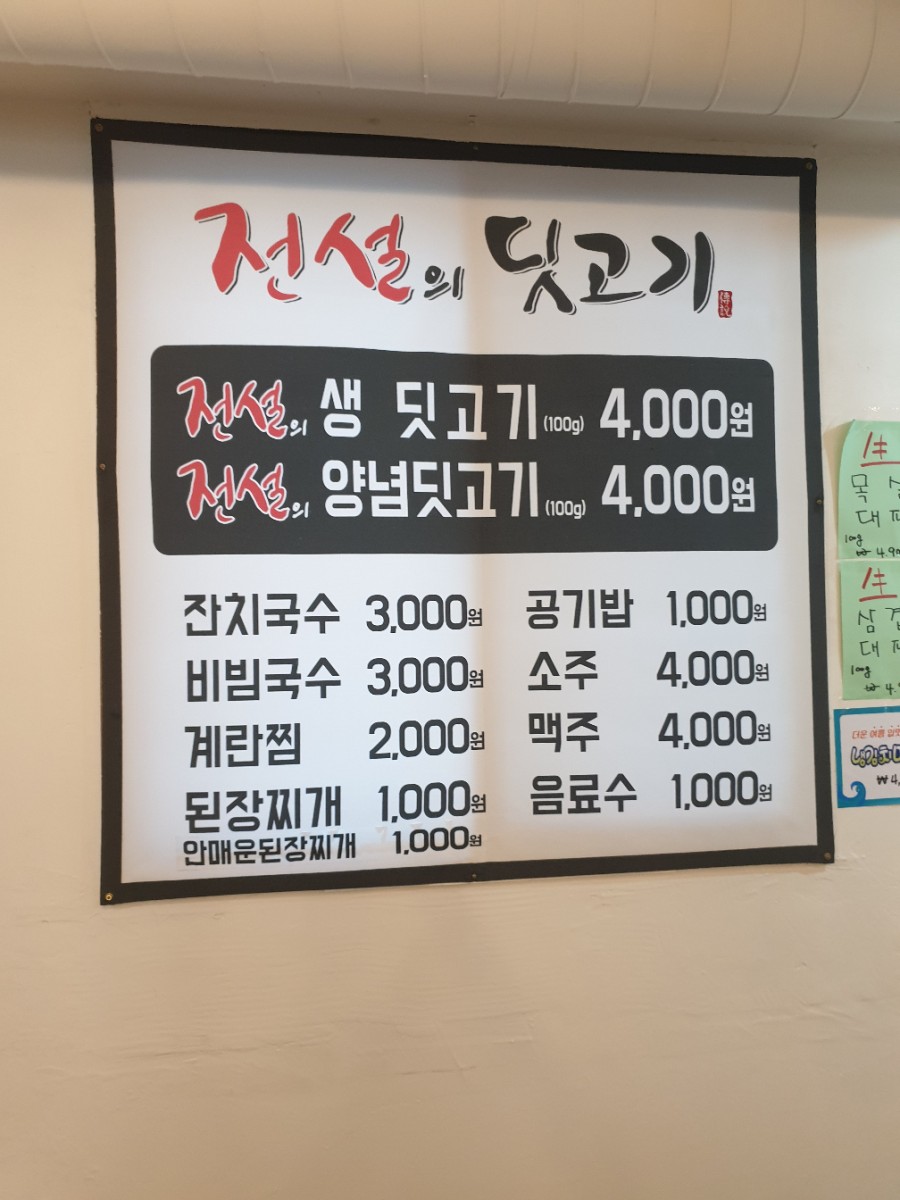 전설의 딧고기
전설의 생 딧고기(100g) 4,000원
전설의 양념딧고기(100g) 4,000원
잔치국수 3,000원
비빔국수 3,000원
계란찜 2,000원
된장찌개 1,000원
안매운된장찌개 1,000원
공기밥 1,000원
소주 4,000원
맥주 4,000원
음료수 1,000원
生
목
대
100g
₩ 4.9
生
삼
대
100g
₩ 4.
더운 여름
₩4,